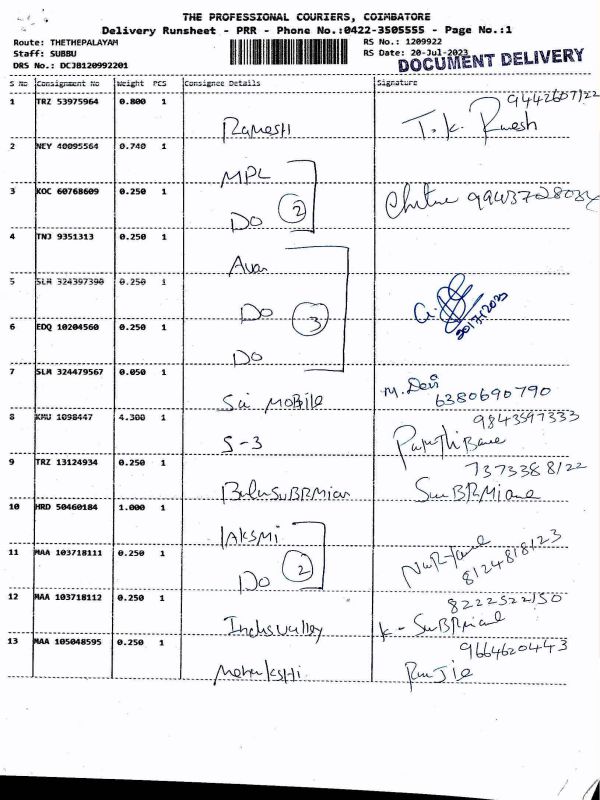 THE PROFESSIONAL COURIERS, COIMBATORE
Delivery Runsheet - PRR - Phone No.:0422-3505555 - Page No.:1
Route: THETHEPALAYAM
Staff: SUBBU
DRS No.: DCJB120992201
RS No.: 1209922
RS Date: 20-Jul-2023
DOCUMENT DELIVERY
S No Consignment No Weight PCS Consignee Details Signature
1 TRZ 53975964 0.800 1 Ramesh T.K. 9442607122
2 NEY 40095564 0.740 1 MPL
3 KOC 60768609 0.250 1 Do 2
4 TNJ 9351313 0.250 1
5 SLM 324397390 0.250 1 Do 3 20/7/2023
6 EDQ 10204560 0.250 1 Do
7 SLM 324479567 0.050 1 Sai MoBile M. Devi 6380690790
8 KMU 1098447 4.300 1 S-3 9843597333
9 TRZ 13124934 0.250 1 7373388122
10 HRD 50460184 1.000 1 lAKSMi
11 MAA 103718111 0.250 1 Do 2 8124818123
12 MAA 103718112 0.250 1 8222522150
13 MAA 105048595 0.250 1 9664620443